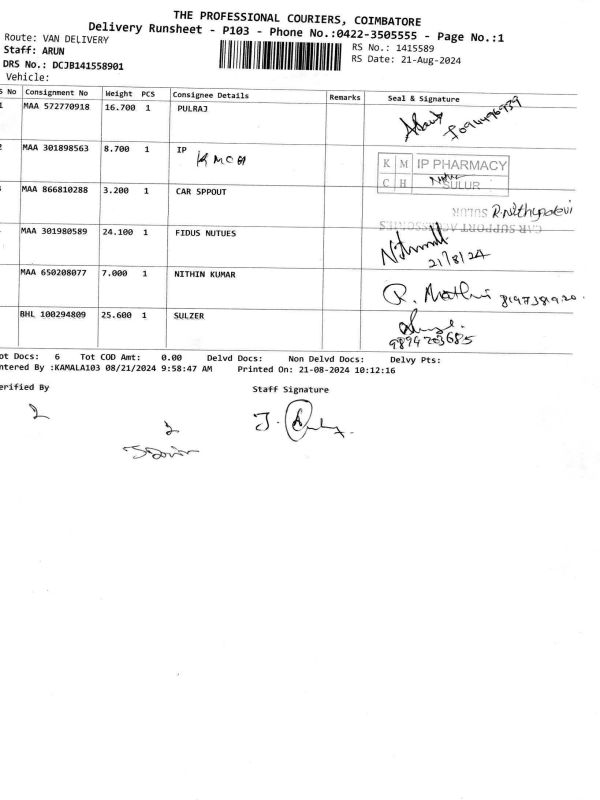 THE PROFESSIONAL COURIERS, COIMBATORE
Delivery Runsheet - P103 - Phone No.:0422-3505555 - Page No.:1
Route: VAN DELIVERY
RS No.: 1415589
Staff: ARUN
RS Date: 21-Aug-2024
DRS No.: DCJB141558901
Vehicle:
S No Consignment No Weight PCS Consignee Details Remarks Seal & Signature
1 MAA 572770918 16.700 1 PULRAJ
2 MAA 301898563 8.700 1 IP
KMCH
K M C H IP PHARMACY
SULUR
MAA 866810288 3.200 1 CAR SPPOUT
R.Nithyadevi
SULUR
CAR SUPPORT ACCESSORIES
MAA 301980589 24.100 1 FIDUS NUTUES
21/8/24
MAA 650208077 7.000 1 NITHIN KUMAR
R.
BHL 100294809 25.600 1 SULZER
9894703685
ot Docs: 6 Tot COD Amt: 0.00 Delvd Docs: Non Delvd Docs: Delvy Pts:
ntered By :KAMALA103 08/21/2024 9:58:47 AM Printed On: 21-08-2024 10:12:16
erified By Staff Signature